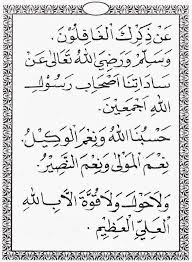 عَنْ ذِكْرِكَ الْغَافِلُوْنَ.
وَسَلَّمَ وَرَضِيَ اللهُ تَعَالَى عَنْ
سَادَاتِنَا اَصْحَابِ رَسُوْلِ
اللهِ اَجْمَعِيْنَ.
حَسْبُنَا اللهُ وَنِعْمَ الْوَكِيْلُ
نِعْمَ الْمَوْلَى وَنِعْمَ النَّصِيْرُ
وَلَاحَوْلَ وَلَاقُوَّةَ اِلَّابِاللهِ
الْعَلِيِّ الْعَظِيْمِ.